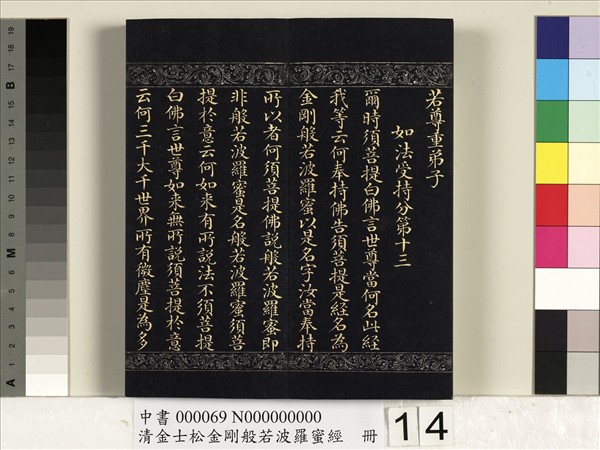 若尊重弟子
如法受持分第十三
爾時須菩提白佛言世尊當何名此經
我等云何奉持佛告須菩提是經名為
金剛般若波羅蜜以是名字汝當奉持
所以者何須菩提佛說般若波羅蜜即
非般若波羅蜜是名般若波羅蜜須菩
提於意云何如來有所說法不須菩提
白佛言世尊如來無所說須菩提於意
云何三千大千世界所有微塵是為多
中書 000069 N000000000
清金士松金剛般若波羅蜜經 冊
14
A 1 2 3 4 5 6 M 8 9 10 11 12 13 14 15 B 17 18 19